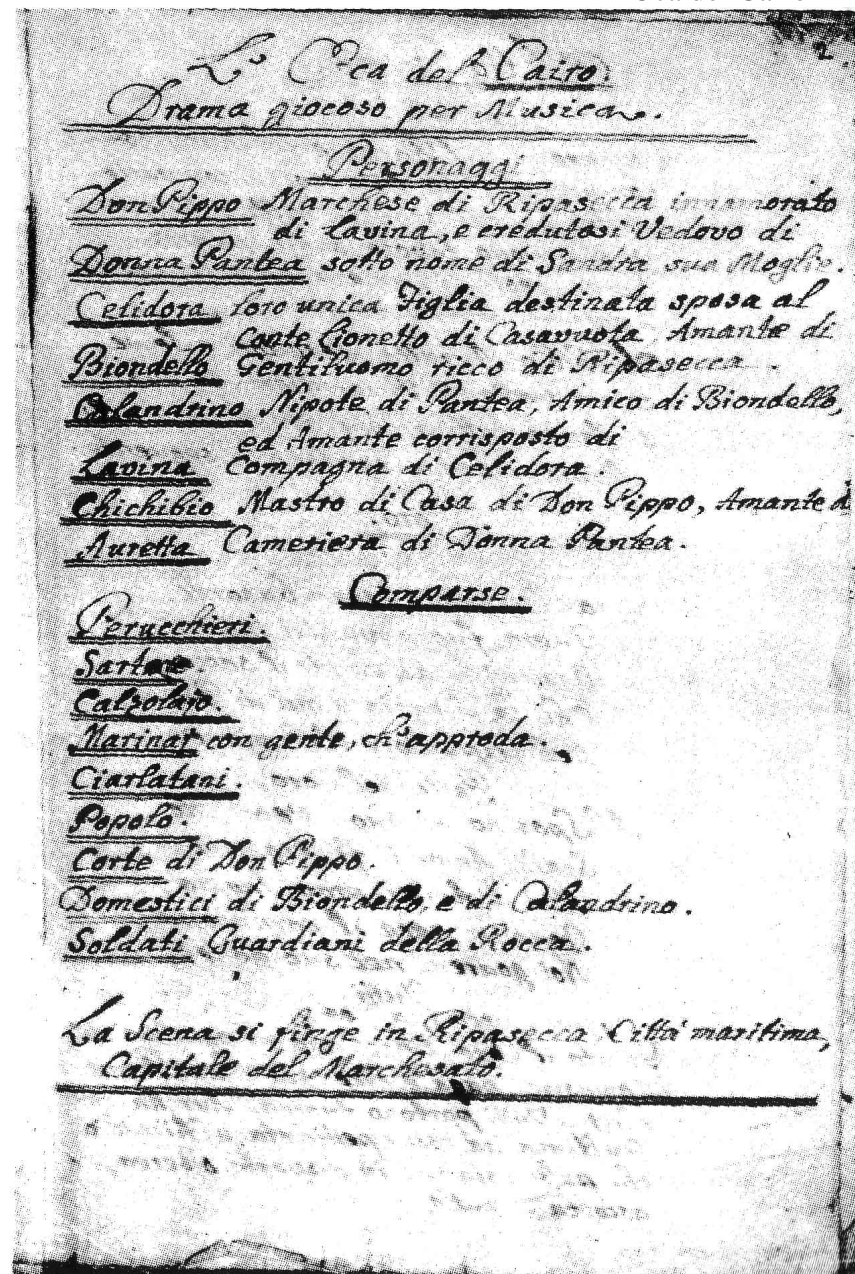 2.
L'Oca del Cairo.
Drama giocoso per Musica.
Personaggi
Don Pippo Marchese di Ripasecca innamorato
di Lavina, e credutosi Vedovo di
Donna Pantea sotto nome di Sandra sua Moglie.
Celidora loro unica Figlia destinata sposa al
Conte Lionetto di Casavuota, Amante di
Biondello Gentiluomo ricco di Ripasecca.
Calandrino Nipote di Pantea, Amico di Biondello,
ed Amante corrisposto di
Lavina Compagna di Celidora.
Chichibio Mastro di Casa di Don Pippo, Amante d
Auretta Cameriera di Donna Pantea.
Comparse.
Perucchieri.
Sartore.
Calzolajo.
Marinar con gente, ch'approda.
Ciarlatani.
Popolo.
Corte di Don Pippo.
Domestici di Biondello, e di Calandrino.
Soldati Guardiani della Rocca.
La Scena si finge in Ripasecca Città maritima,
Capitale del Marchesato.